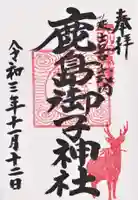 奉拝
鹿島御子神社
令和三年十一月十二日